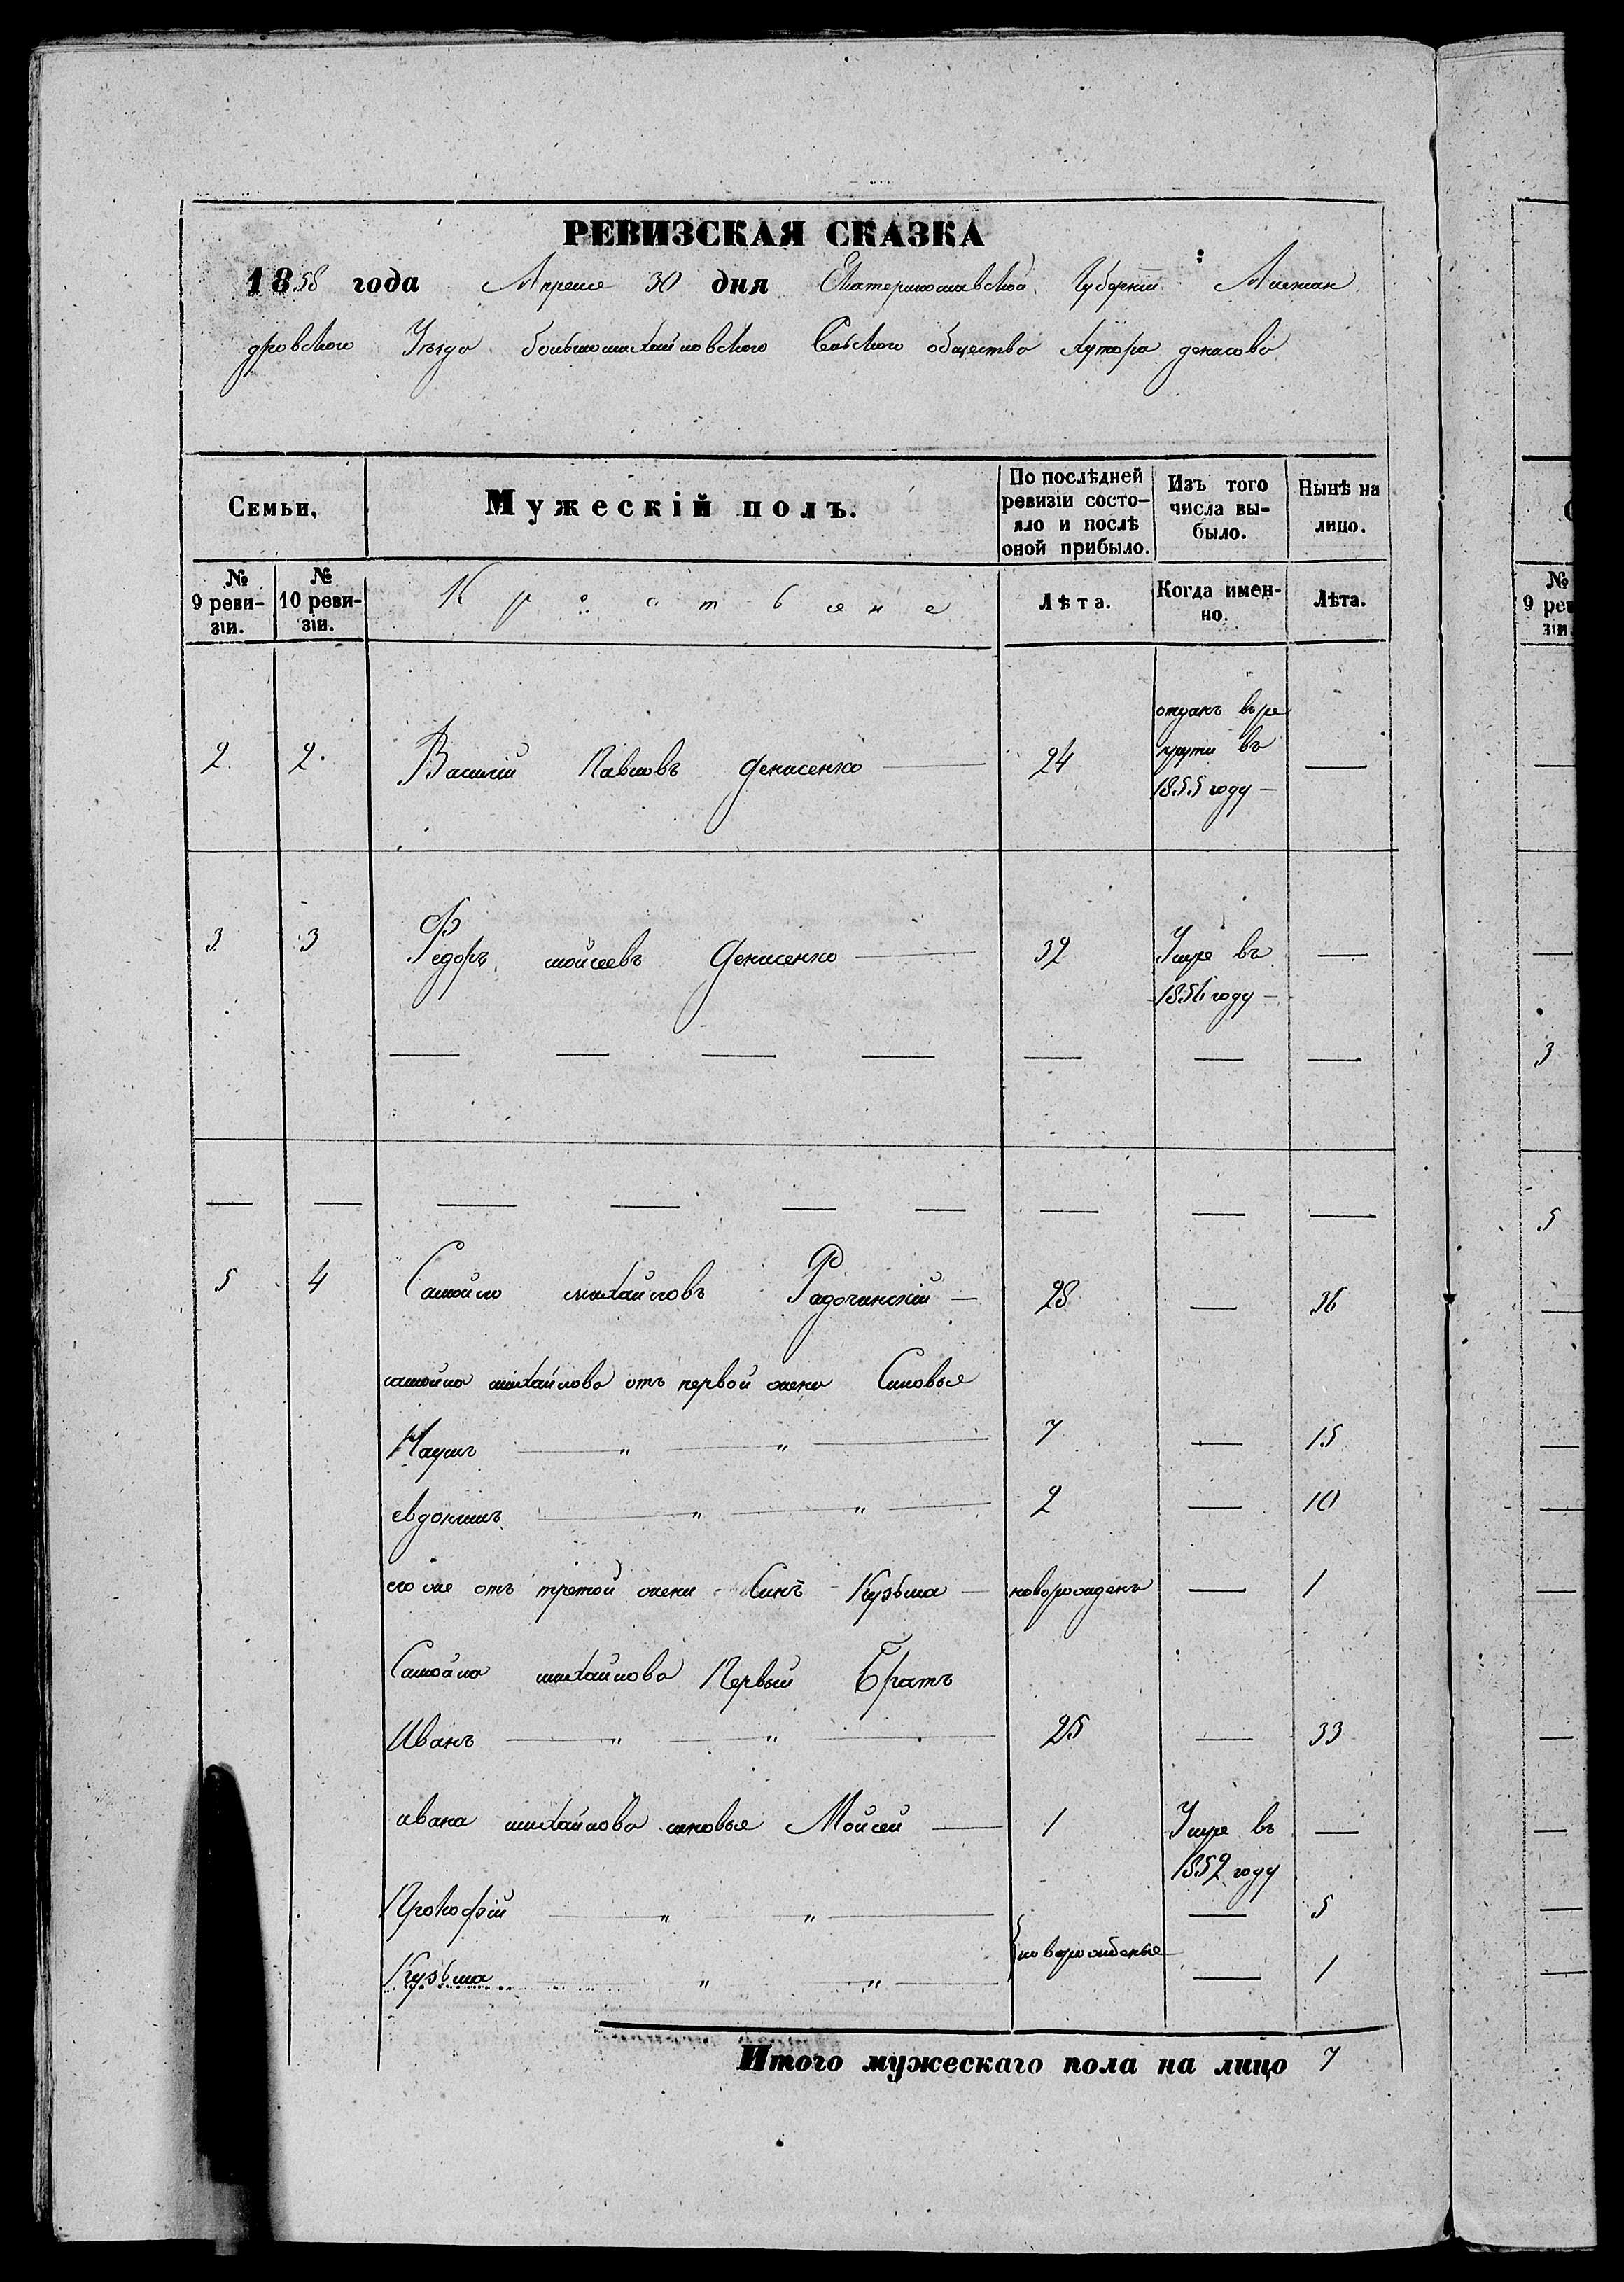 РЕВИЗСКАЯ СКАЗКА
1858 года Апреля 30 дня Екатеринославской Губернии Алексан
дровского Уезда большомихайловского Сельского общества хутора
Семьи, Мужескій полъ. По послѣдней ревизіи состо-яло и послѣ оной прибыло. Изъ того числа вы-было. Нынѣ на лицо.
№ 9 реви-зіи. № 10 реви-зіи. Крестьяне Лѣта. Когда имен-но. Лѣта.
отданъ въ ре
круты въ
2. 2. Василій Павловъ Денисенко — 24 —
1855 году —
3. 3 Федоръ мойсеевъ Денисенко — 32 Умре въ —
1856 году —
— — — — — — —
— — — — — — — — —
5 4 Самойло михайловъ Радочинскій — 28 — 36
самойла михайлова отъ первой жены Сыновья
Наумъ — " — " — 7 — 15
евдокимъ — " — " — 2 — 10
его же отъ третой жены Сынъ Кузьма — новорожденъ — 1
Самойла михайлова Первый Братъ
Иванъ — " — " — 25 — 33
ивана михайлова сыновья Мойсей — 1 Умре въ —
1852 году
Прокофій — " — " — — 5
новорожденые
Кузьма — " — " — — 1
Итого мужескаго пола на лицо 7
№
9 рев
зіи.
3
5